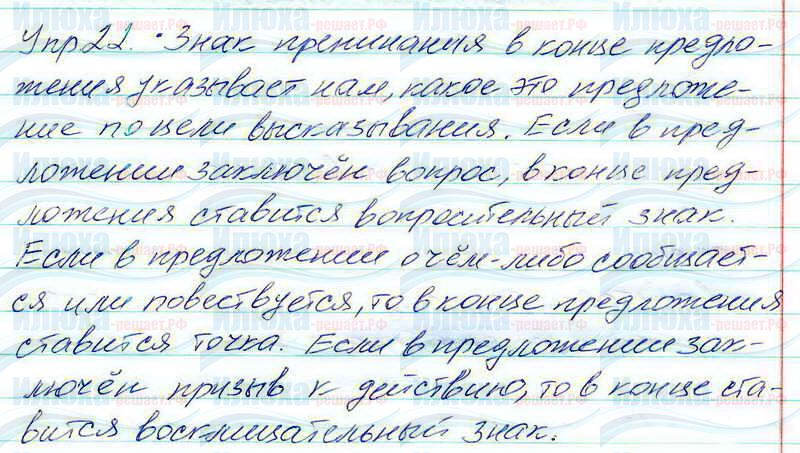 Упр 22. Знак препинания в конце предло-
жения указывает нам, какое это предложе-
ние по цели высказывания. Если в пред-
ложении заключён вопрос, в конце пред-
ложения ставится вопросительный знак.
Если в предложении о чём-либо сообщает-
ся или повествуется, то в конце предложения
ставится точка. Если в предложении зак-
лючён призыв к действию, то в конце ста-
вится восклицательный знак.